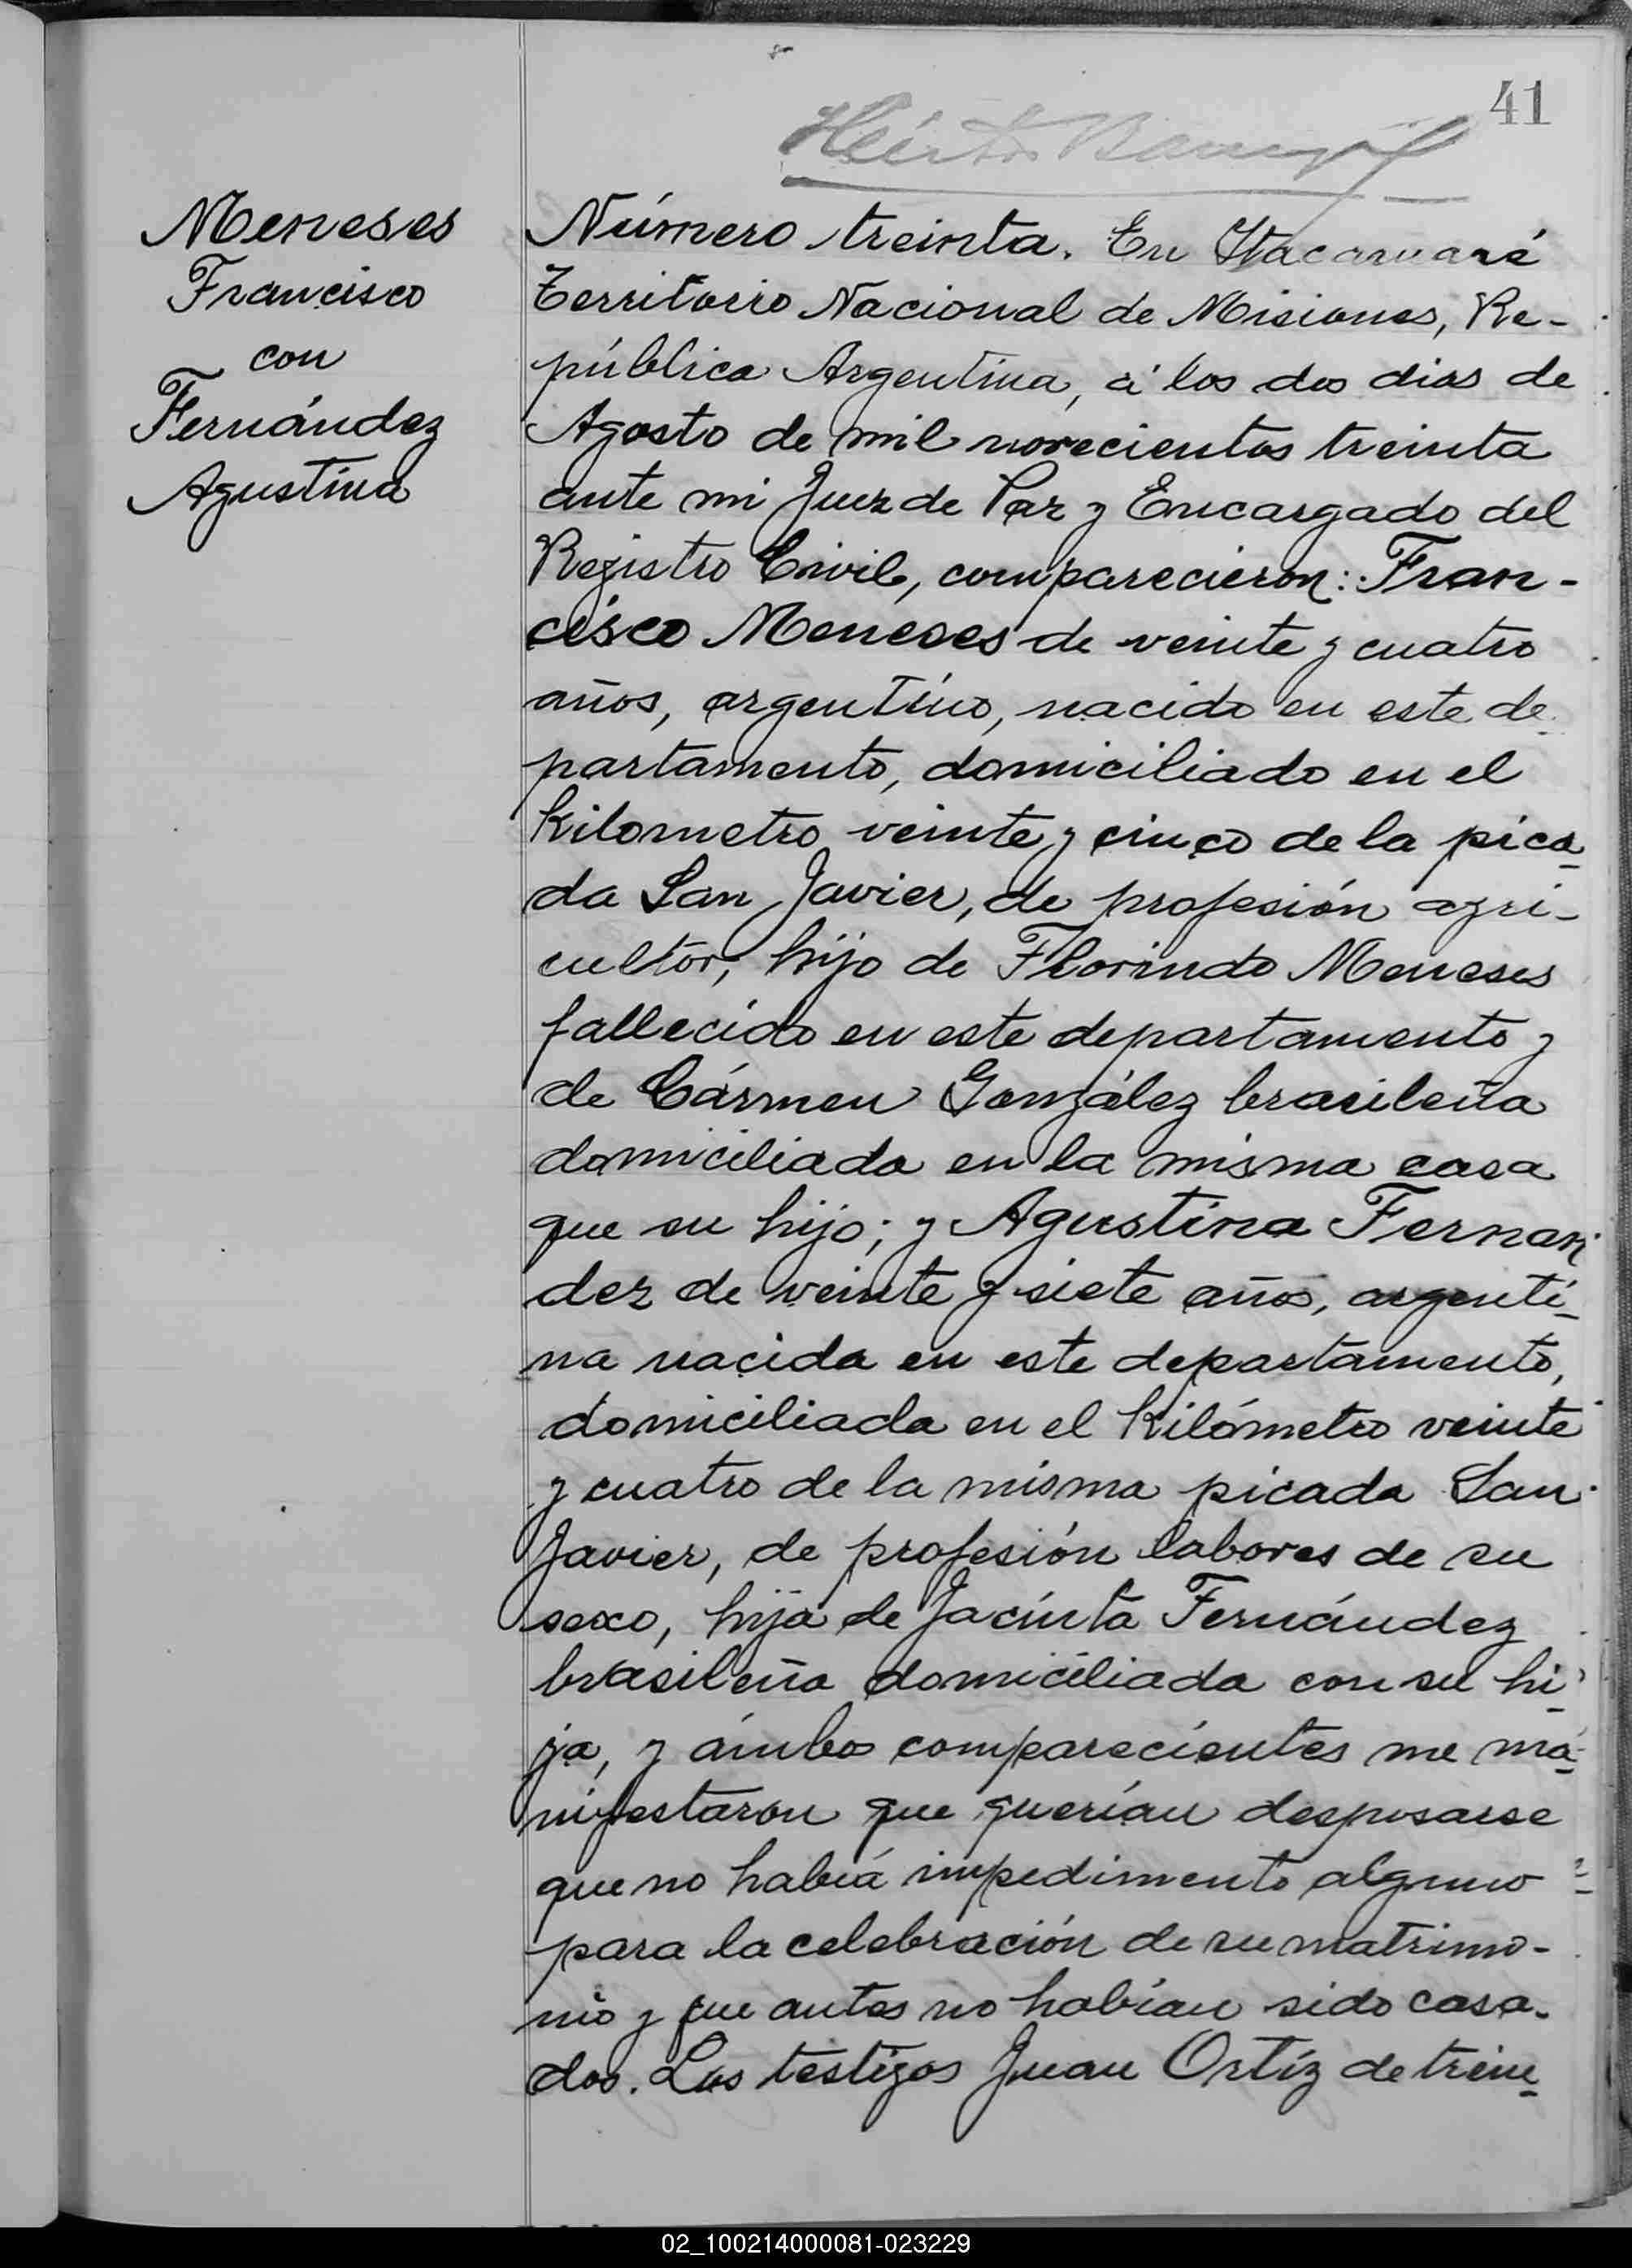 41
Meneses
Francisco
con
Fernández
Agustina
Número treinta. En Itacaruaré
Territorio Nacional de Misiones, Re-
pública Argentina, á los dos dias de
Agosto de mil novecientos treinta
ante mi Juez de Paz y Encargado del
Registro Civil, comparecieron: Fran-
cisco Meneses de veinte y cuatro
años, argentino, nacido en este de-
partamento, domiciliado en el
Kilometro veinte y cinco de la pica-
da San Javier, de profesión agri-
cultor, hijo de Florindo Meneses
fallecido en este departamento y
de Cármen González brasileña
domiciliada en la misma casa
que su hijo; y Agustina Fernan-
dez de veinte y siete años, argenti-
na nacida en este departamento,
domiciliada en el Kilómetro veinte
y cuatro de la misma picada San
Javier, de profesión labores de su
sexo, hija de Jacinta Fernández
brasileña domiciliada con su hi-
ja, y ámbos comparecientes me ma-
nifestaron que querían desposarse
que no había impedimento alguno
para la celebración de su matrimo-
nio y que antes no habían sido casa-
dos. Los testigos Juan Ortíz de trein-
02_100214000081-023229